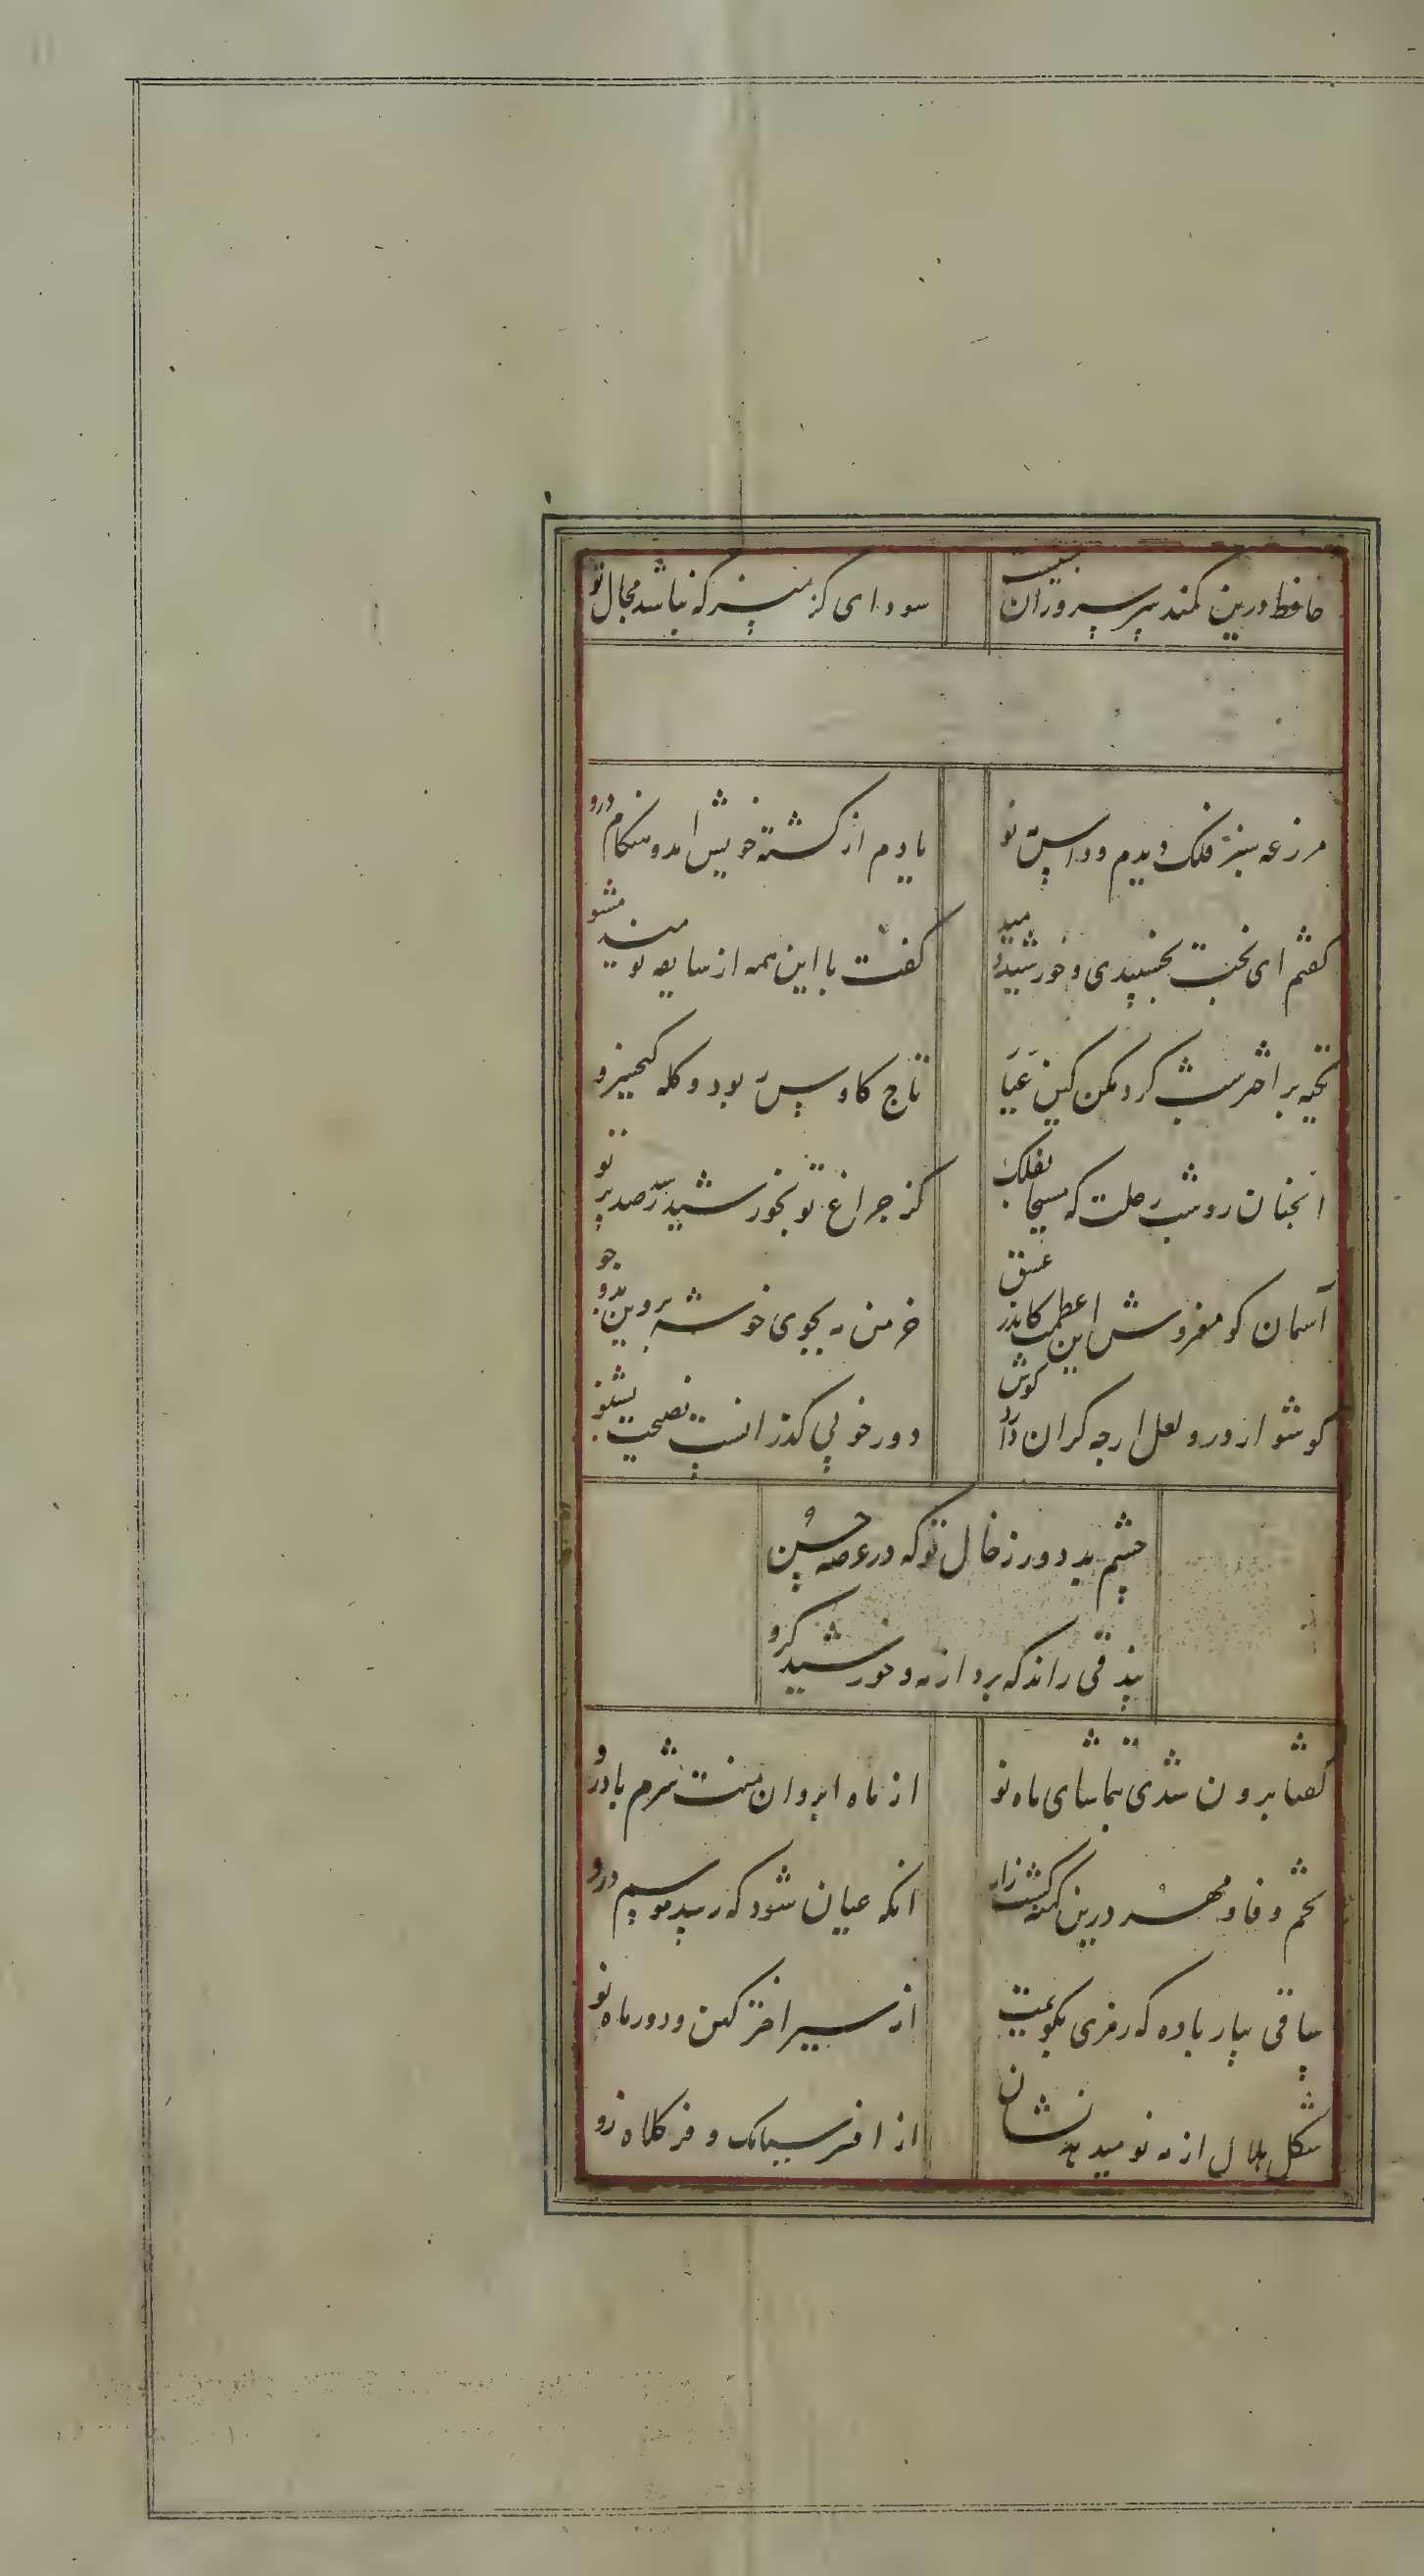 حافظ درین کمند سر سروران بسیست
سودای کژ مپز که نباشد مجال تو
مزرعه سبز فلک دیدم و داس مه نو
یادم از کشته خویش امد و هنکام درو
کفتم ای بخت بخسپیدی و خورشید دمید
کفت با این همه از سابقه نومید مشو
تکیه بر اختر شب کرد مکن کین عیار
تاج کاوس ربود و کله کیخسرو
انچنان رو شب رحلت که مسیحا بفلک
کز چراغ تو بخورشید رسد صد پرتو
آسمان کو مفروش این عظمت کاندر عشق
خرمن مه بجوی خوشه پروین بدو جو
کوشوار در و لعل ارچه کران دارد کوش
دور خوبی کذرانست نصیحت بشنو
چشم بد دور ز خال تو که در عرصه حسن
بیدقی راند که برد از مه و خورشید کرو
کفتا برون شدی بتماشای ماه نو
از ماه ابروان منت شرم باد رو
تخم وفا و مهر درین کهنه کشت زار
انکه عیان شود که رسد موسم درو
ساقی بیار باده که رمزی بکویمت
از سیر اختر کهن و دور ماه نو
شکل هلال از مه نو میدهد نشان
از افسر سیامک و فر کلاه زو